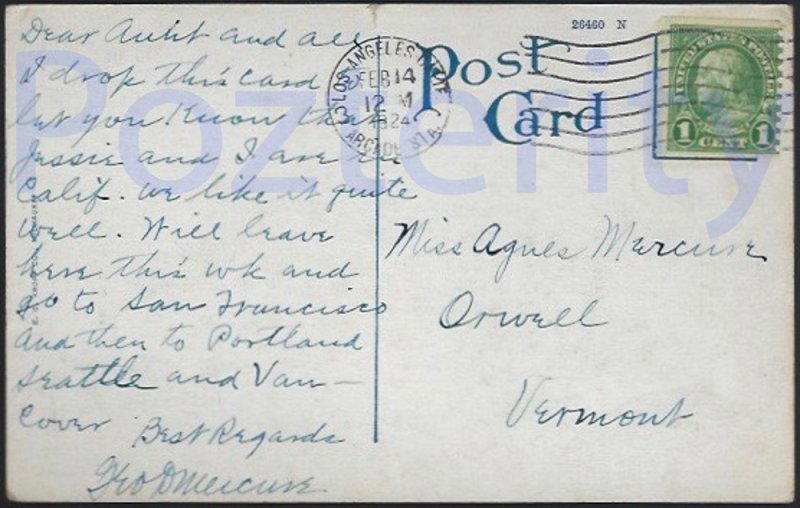 Dear Aunt and all
I drop this card
let you know that
Jessie and I are in
Calif. we like it quite
well. Will leave
here this wk and
go to San Francisco
and then to Portland
Seattle and Van-
cover
Best Regards
Geo D Mercure
26460 N
Post
Card
LOS ANGELES, CALIF.
FEB 14
12 M
1924
ARCADE STA.
UNITED STATES POSTAGE
1 CENT 1
Miss Agnes Mercure
Orwell
Vermont
Pozterity